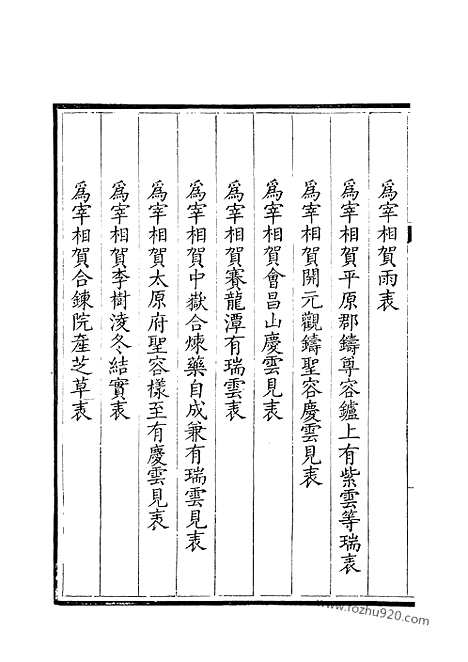 爲宰相賀雨表
爲宰相賀平原郡鑄尊容鑪上有紫雲等瑞表
爲宰相賀開元觀鑄聖容慶雲見表
爲宰相賀會昌山慶雲見表
爲宰相賀賽龍潭有瑞雲表
爲宰相賀中嶽合煉藥自成兼有瑞雲見表
爲宰相賀太原府聖容樣至有慶雲見表
爲宰相賀李樹淩冬結實表
爲宰相賀合鍊院産芝草表
www.fozhu920.com